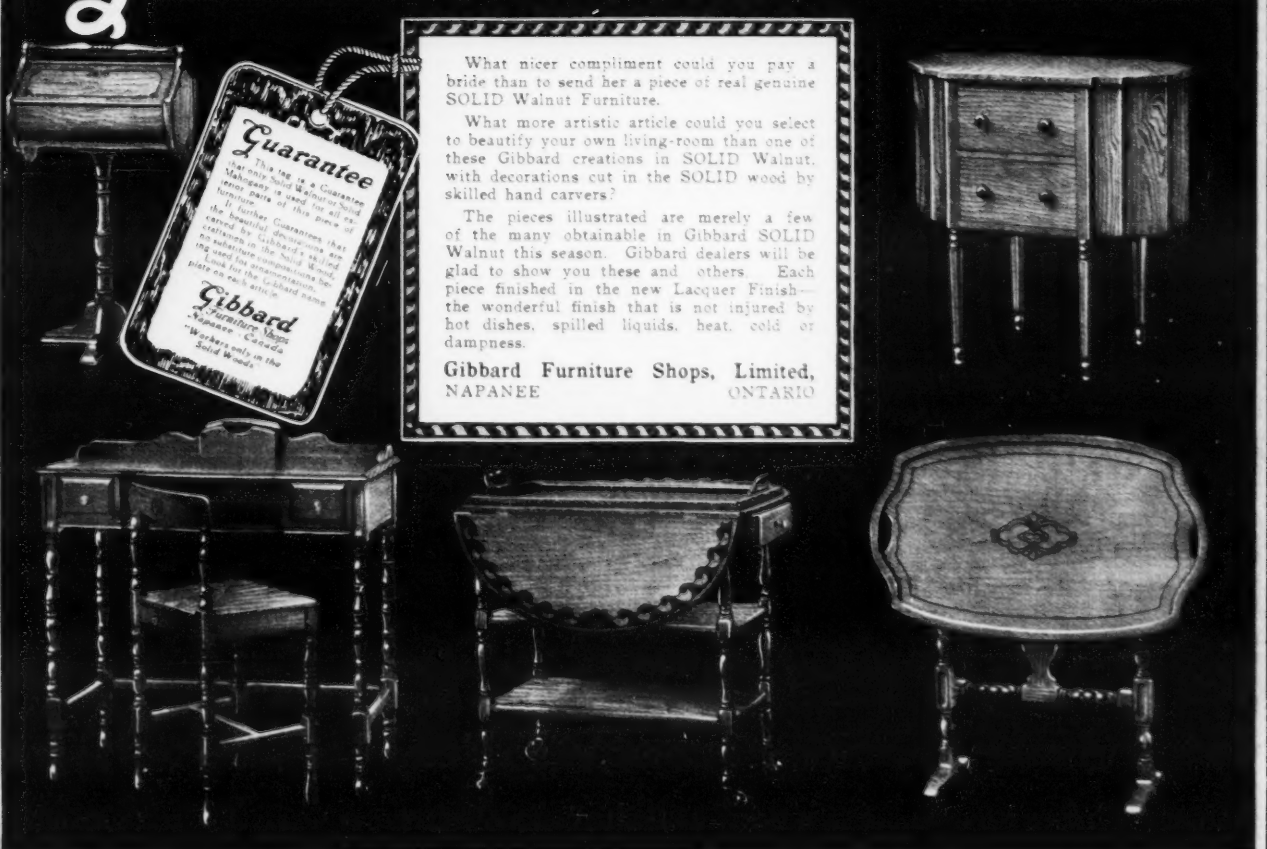 Guarantee
This tag is a Guarantee
that only Solid Walnut or Solid
Mahogany is used for all ex-
terior parts of this piece of
furniture.
It further Guarantees that
the beautiful decorations are
carved by Gibbard's skilled
craftsmen in the Solid Wood,
no substitute compositions be-
ing used for ornamentation.
Look for the Gibbard name
plate on each article.
Gibbard
Furniture Shops
Napanee - Canada
"Workers only in the
Solid Woods"
What nicer compliment could you pay a
bride than to send her a piece of real genuine
SOLID Walnut Furniture.
What more artistic article could you select
to beautify your own living-room than one of
these Gibbard creations in SOLID Walnut,
with decorations cut in the SOLID wood by
skilled hand carvers?
The pieces illustrated are merely a few
of the many obtainable in Gibbard SOLID
Walnut this season. Gibbard dealers will be
glad to show you these and others. Each
piece finished in the new Lacquer Finish—
the wonderful finish that is not injured by
hot dishes, spilled liquids, heat, cold or
dampness.
Gibbard Furniture Shops, Limited,
NAPANEE ONTARIO